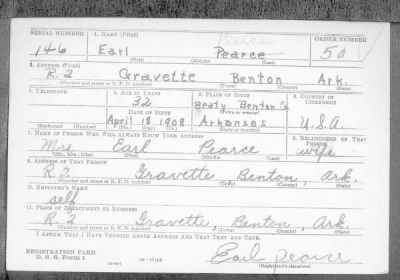 SERIAL NUMBER 1. NAME (Print) ORDER NUMBER
Pierce
146 Earl Pearce 50
(First) (Middle) (Last)
2. ADDRESS (Print)
R.2 Gravette Benton Ark.
(Number and street or R. F. D. number) (Town) (County) (State)
3. TELEPHONE 4. AGE IN YEARS 5. PLACE OF BIRTH 6. COUNTRY OF CITIZENSHIP
32 Beaty Benton Co
DATE OF BIRTH (Town or county)
April 18 1908 Arkansas U.S.A.
(Exchange) (Number) (Mo.) (Day) (Yr.) (State or country)
7. NAME OF PERSON WHO WILL ALWAYS KNOW YOUR ADDRESS 8. RELATIONSHIP OF THAT PERSON
Mrs. Earl Pearce wife
(Mr., Mrs., Miss) (First) (Middle) (Last)
9. ADDRESS OF THAT PERSON
R.2 Gravette, Benton, Ark.
(Number and street or R. F. D. number) (Town) (County) (State)
10. EMPLOYER'S NAME
self
11. PLACE OF EMPLOYMENT OR BUSINESS
R.2 Gravette, Benton, Ark.
(Number and street or R. F. D. number) (Town) (County) (State)
I AFFIRM THAT I HAVE VERIFIED ABOVE ANSWERS AND THAT THEY ARE TRUE.
REGISTRATION CARD
D. S. S. Form 1 (over) 16-17105 Earl Pearce
(Registrant's signature)